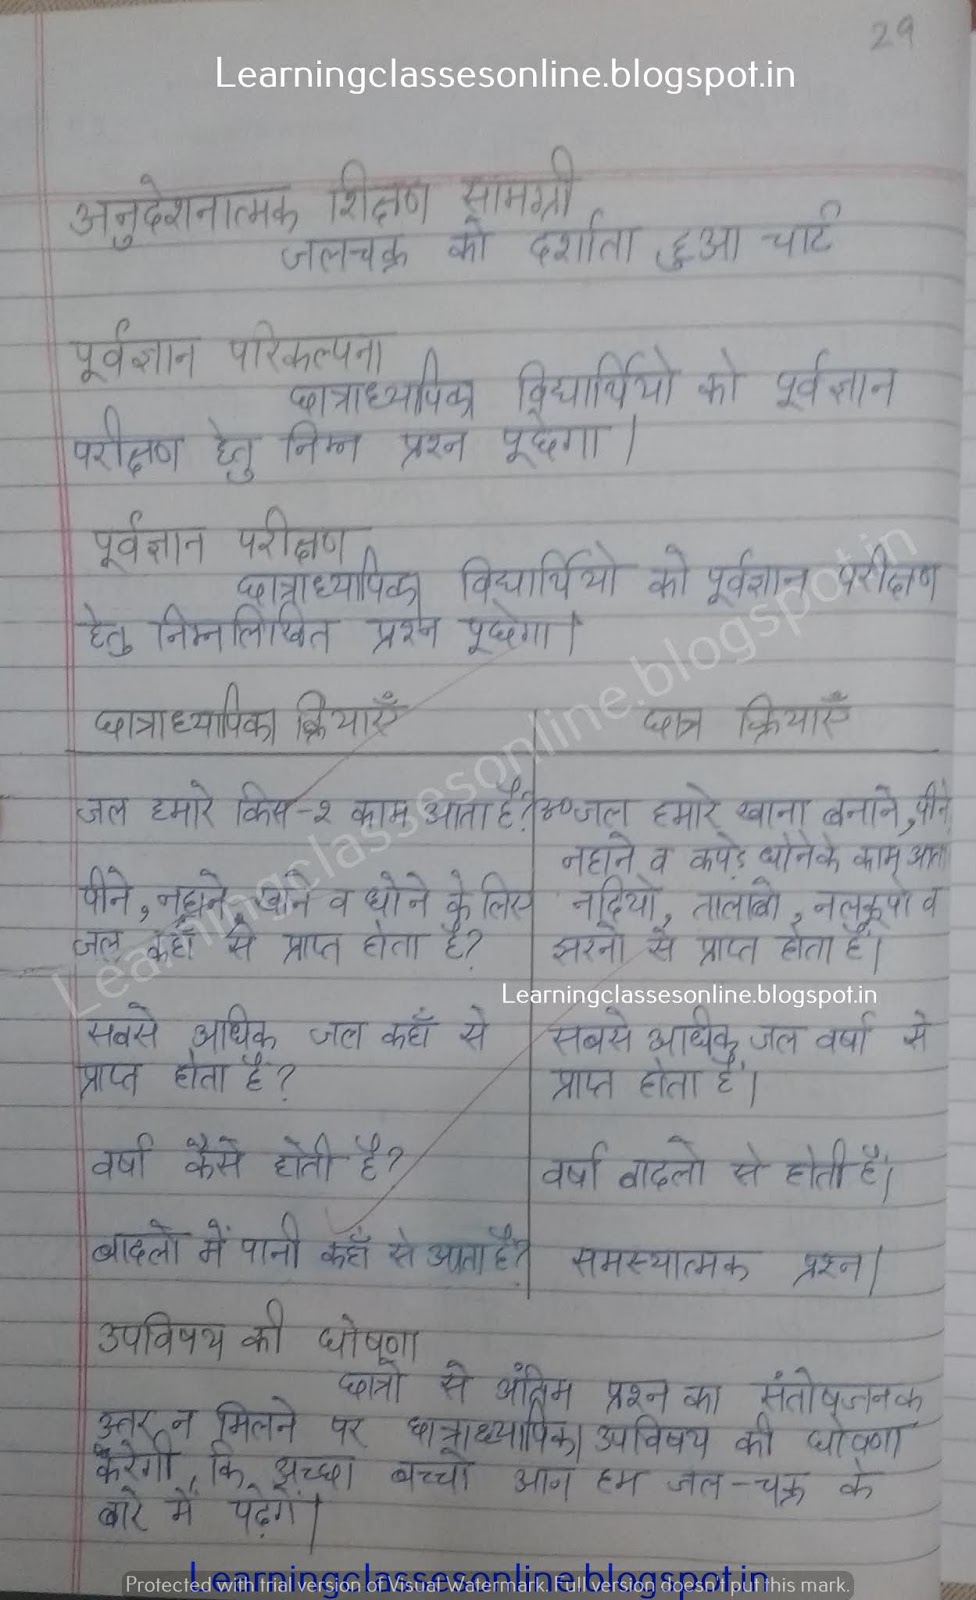 29
Learningclassesonline.blogspot.in
अनुदेशनात्मक शिक्षण सामग्री
जलचक्र को दर्शाता हुआ चार्ट
पूर्वज्ञान परिकल्पना
छात्राध्यापिका विद्यार्थियो को पूर्वज्ञान
परीक्षण हेतु निम्न प्रश्न पूछेगा।
पूर्वज्ञान परीक्षण
छात्राध्यापिका विद्यार्थियो को पूर्वज्ञान परीक्षण
हेतु निम्नलिखित प्रश्न पूछेगा।
Learningclassesonline.blogspot.in
छात्राध्यापिका क्रियाएँ | छात्र क्रियाएँ
जल हमारे किस-२ काम आता है? जल हमारे खाना बनाने, पीने
नहाने व कपड़े धोने के काम आता
पीने, नहाने, खाने व धोने के लिए नदियो, तालाबो, नलकूपो व
जल कहाँ से प्राप्त होता है? झरनो से प्राप्त होता है।
Learningclassesonline.blogspot.in
सबसे अधिक जल कहाँ से सबसे अधिक जल वर्षा से
प्राप्त होता है? प्राप्त होता है।
वर्षा कैसे होती है? वर्षा बादलो से होती है।
बादलो में पानी कहाँ से आता है? समस्यात्मक प्रश्न।
उपविषय की घोषणा
छात्रो से अंतिम प्रश्न का संतोषजनक
उत्तर न मिलने पर छात्राध्यापिका उपविषय की घोषणा
करेगी, कि अच्छा बच्चो आज हम जल-चक्र के
बारे में पढ़ेगे।
Learningclassesonline.blogspot.in
Protected with trial version of Visual Watermark. Full version doesn't put this mark.